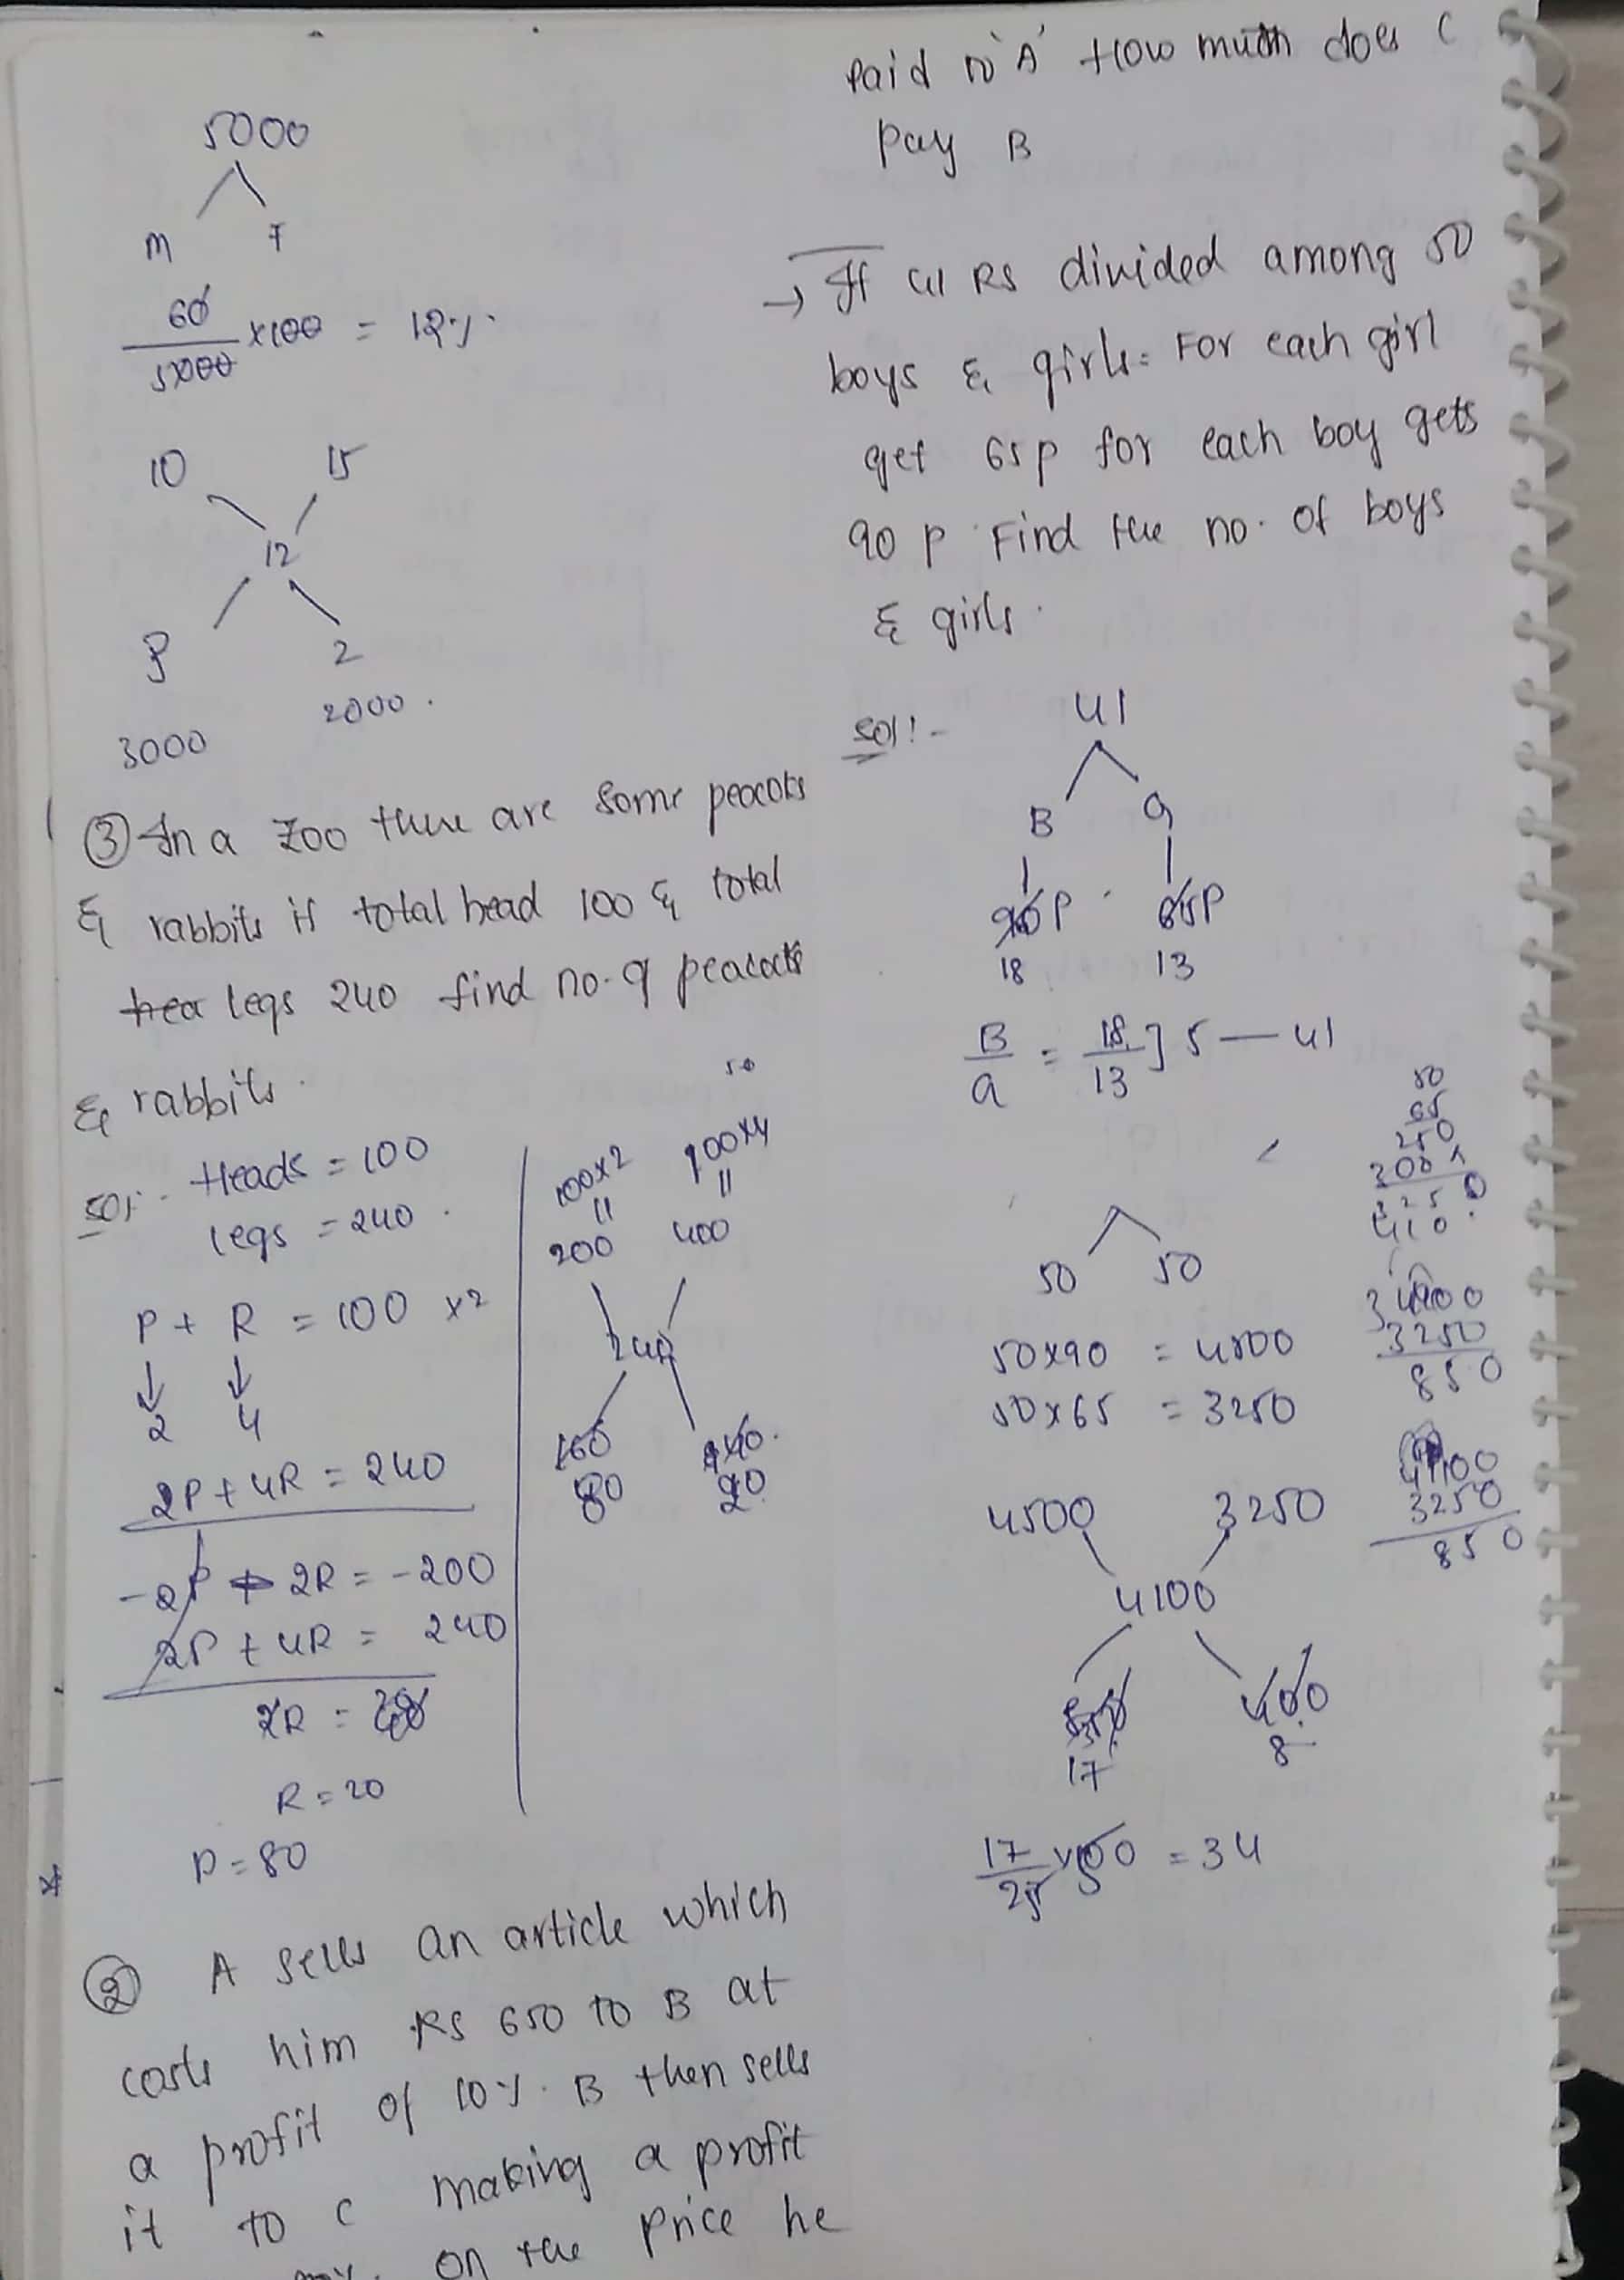 5000
m F
60/5000 ×100 = 12%.
10 15
12
3 2
3000 2000.
③ In a zoo there are some peacoks
& rabbits if total head 100 & total
hea legs 240 find no. of peacocks
& rabbits.
sol:- Heads = 100
legs = 240.
P + R = 100 ×2
2 4
2P + 4R = 240
-2P - 2R = -200
2P + 4R = 240
2R = 40
R = 20
P = 80
50
100×2 100×4
200 400
240
160 40
80 20
② A sells an article which
costs him Rs 650 to B at
a profit of 10%. B then sells
it to C making a profit
on the price he
paid to 'A' How much does C
pay B
→ If 41 RS divided among 50
boys & girls. For each girl
get 65p for each boy gets
90 p. Find the no. of boys
& girls.
sol:- 41
B G
90P 65P
18 13
B/G = 18/13 ] 5 — 41
50
65
250
300×
3250
410
50 50
50×90 = 4500
50×65 = 3250
4100
3250
850
4500 3250
4100
850 400
17 8
4100
3250
850
17/25 × 50 = 34